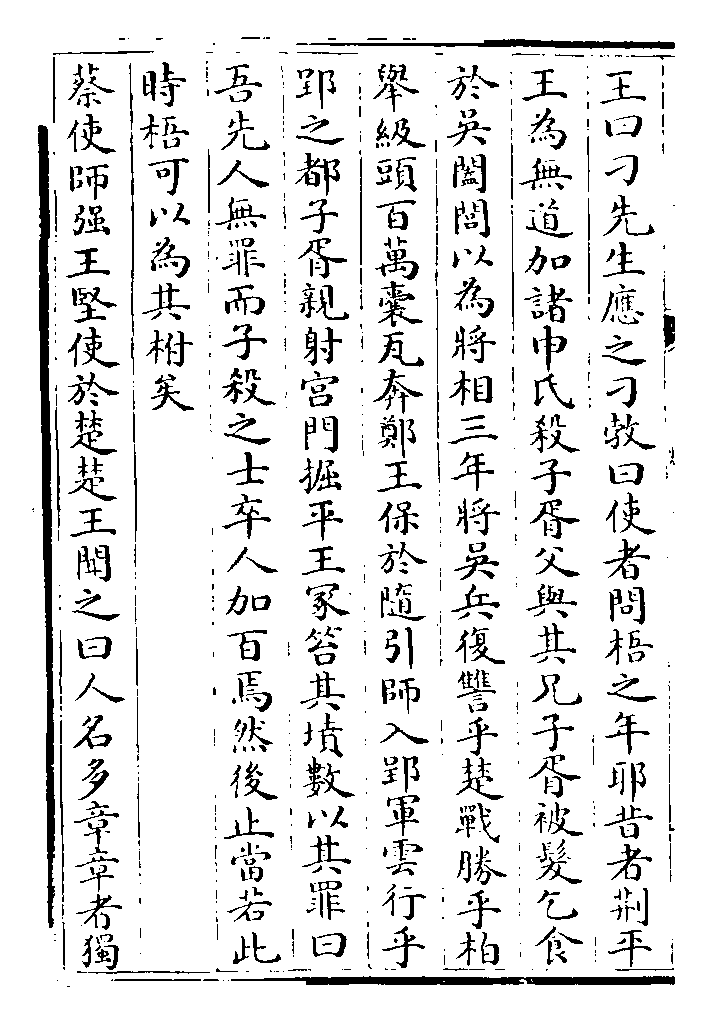 王曰刁先生應之刁敎曰使者問梧之年耶昔者荆平
王為無道加諸申氏殺子胥父與其兄子胥被髮乞食
於吳闔閭以為將相三年將吳兵復讐乎楚戰勝乎柏
舉級頭百萬囊瓦奔鄭王保於隨引師入郢軍雲行乎
郢之都子胥親射宮門掘平王冢笞其墳數以其罪曰
吾先人無罪而子殺之士卒人加百焉然後止當若此
時梧可以為其柎矣
蔡使師强王堅使於楚楚王聞之曰人名多章章者獨